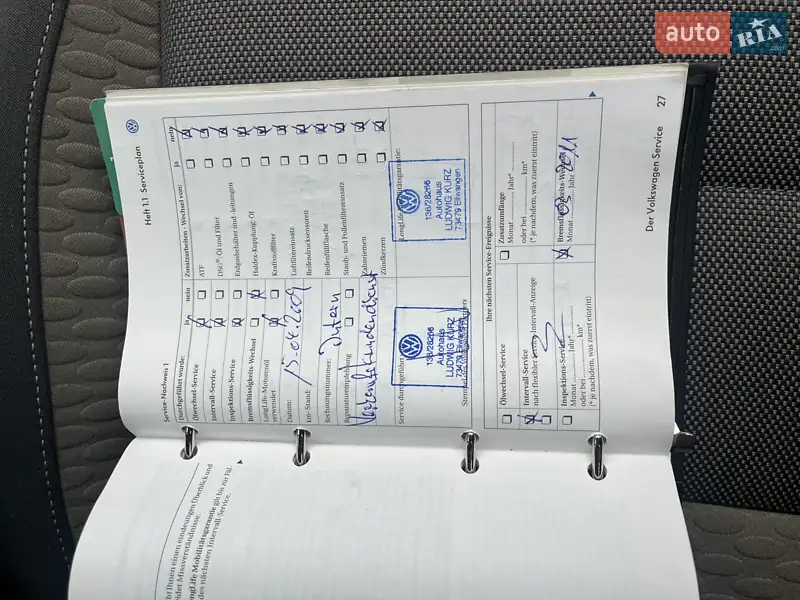 auto RIA.com
Heft 1.1 Serviceplan
Service-Nachweis 1
Durchgeführt wurde:
ja
nein
Ölwechsel-Service
Intervall-Service
Inspektions-Service
Bremsflüssigkeits-Wechsel
LongLife-Motorenöl
verwendet
Datum: 15.04.2009
km-Stand:
Rechnungsnummer: Intern
Reparaturempfehlung
Service durchgeführt
136/28266
Autohaus
LUDWIG KURZ
73479 Ellwangen
Zusatzarbeiten - Wechsel von:
ja
nein
ATF
DSG®-Öl und Filter
Erdgasbehälter und -leitungen
Haldex-Kupplung: Öl
Kraftstofffilter
Luftfiltereinsatz
Reifendrucksensoren
Reifenfüllflasche
Staub- und Pollenfiltereinsatz
Zahnriemen
Zündkerzen
LongLife Mobilitätsgarantie:
136/28266
Autohaus
LUDWIG KURZ
73479 Ellwangen
Ihre nächsten Service-Ereignisse
Ölwechsel-Service
Intervall-Service
nach flexibler Intervall-Anzeige
Inspektions-Service
Monat Jahr*
oder bei km*
(* je nachdem, was zuerst eintritt)
Zusatzumfänge
Monat Jahr*
oder bei km*
(* je nachdem, was zuerst eintritt)
Bremsflüssigkeits-Wechsel
Monat Jahr 2011
Der Volkswagen Service
27
bt Ihnen einen eindeutigen Überblick und
eidet Missverständnisse.
ongLife Mobilitätsgarantie gilt bis zur Fäl-
des nächsten Intervall-Service.